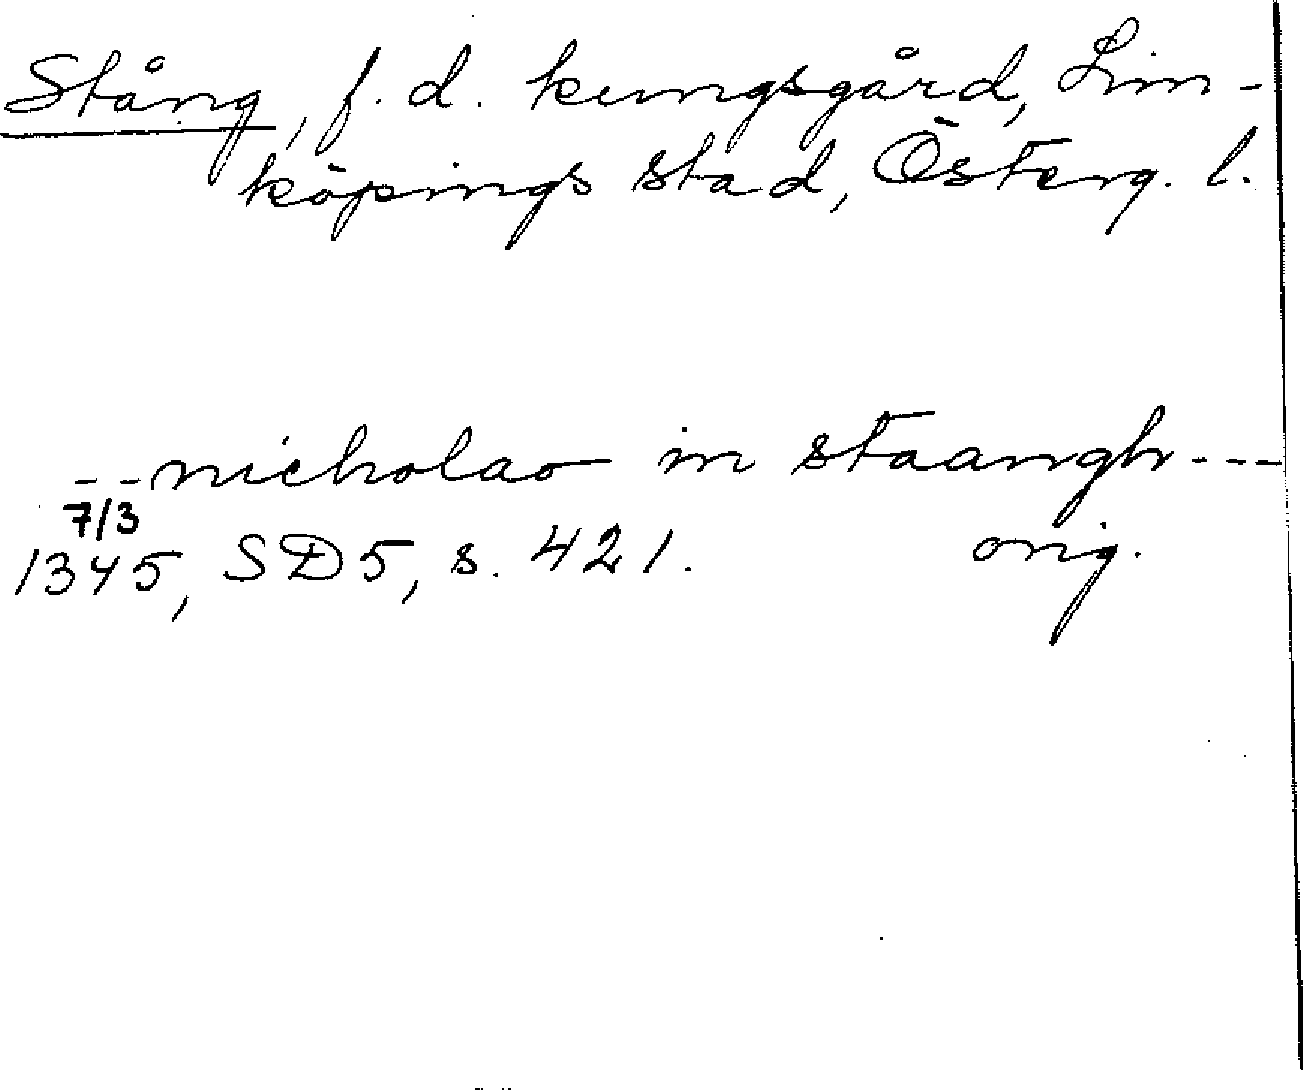 Stång, f. d. kungsgård, Lin-
köpings stad, Österg. l.
--nicholao in staangh---
7/3
1345, SD5, s. 421. orig.